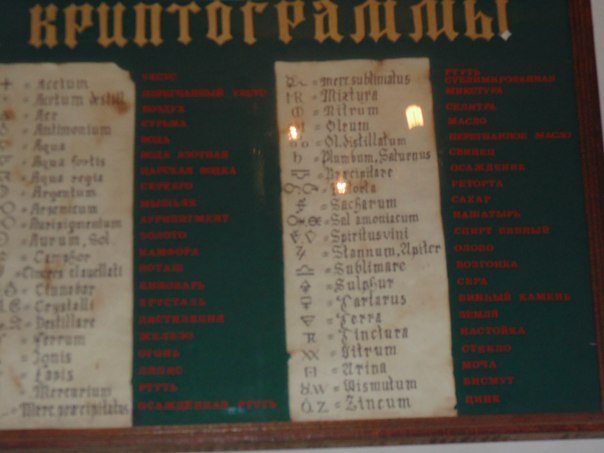 КРИПТОГРАММЫ
= Acetum
= Acetum destill.
= Aer
= Antimonium
= Aqua
= Aqua fortis
= Aqua regis
= Argentum
= Arsenicum
= Auripigmentum
= Aurum, Sol
= Camphor
= Cineres clavellati
= Cinnabar
= Crystalli
= Destillare
= Ferrum
= Ignis
= Lapis
= Mercurium
= Merc. præcipitatus
УКСУС
ПЕРЕГНАННЫЙ УКСУС
ВОЗДУХ
СУРЬМА
ВОДА
ВОДА АЗОТНАЯ
ЦАРСКАЯ ВОДКА
СЕРЕБРО
МЫШЬЯК
АУРИПИГМЕНТ
ЗОЛОТО
КАМФОРА
ПОТАШ
КИНОВАРЬ
ХРУСТАЛЬ
ДИСТИЛЛЯЦИЯ
ЖЕЛЕЗО
ОГОНЬ
ЛЯПИС
РТУТЬ
ОСАЖДЕННАЯ РТУТЬ
= merc. sublimatus
= Mixtura
= Nitrum
= Oleum
= Ol. destillatum
= Plumbum, Saturnus
= Præcipitare
= Retorta
= Sacharum
= Sal amoniacum
= Spiritus vini
= Stannum, Jupiter
= Sublimare
= Sulphur
= Tartarus
= Terra
= Tinctura
= Vitrum
= Urina
= Wismutum
= Zincum
РТУТЬ
СУБЛИМИРОВАННАЯ
МИКСТУРА
СЕЛИТРА
МАСЛО
ПЕРЕГНАННОЕ МАСЛО
СВИНЕЦ
ОСАЖДЕНИЕ
РЕТОРТА
САХАР
НАШАТЫРЬ
СПИРТ ВИННЫЙ
ОЛОВО
ВОЗГОНКА
СЕРА
ВИННЫЙ КАМЕНЬ
ЗЕМЛЯ
НАСТОЙКА
СТЕКЛО
МОЧА
ВИСМУТ
ЦИНК